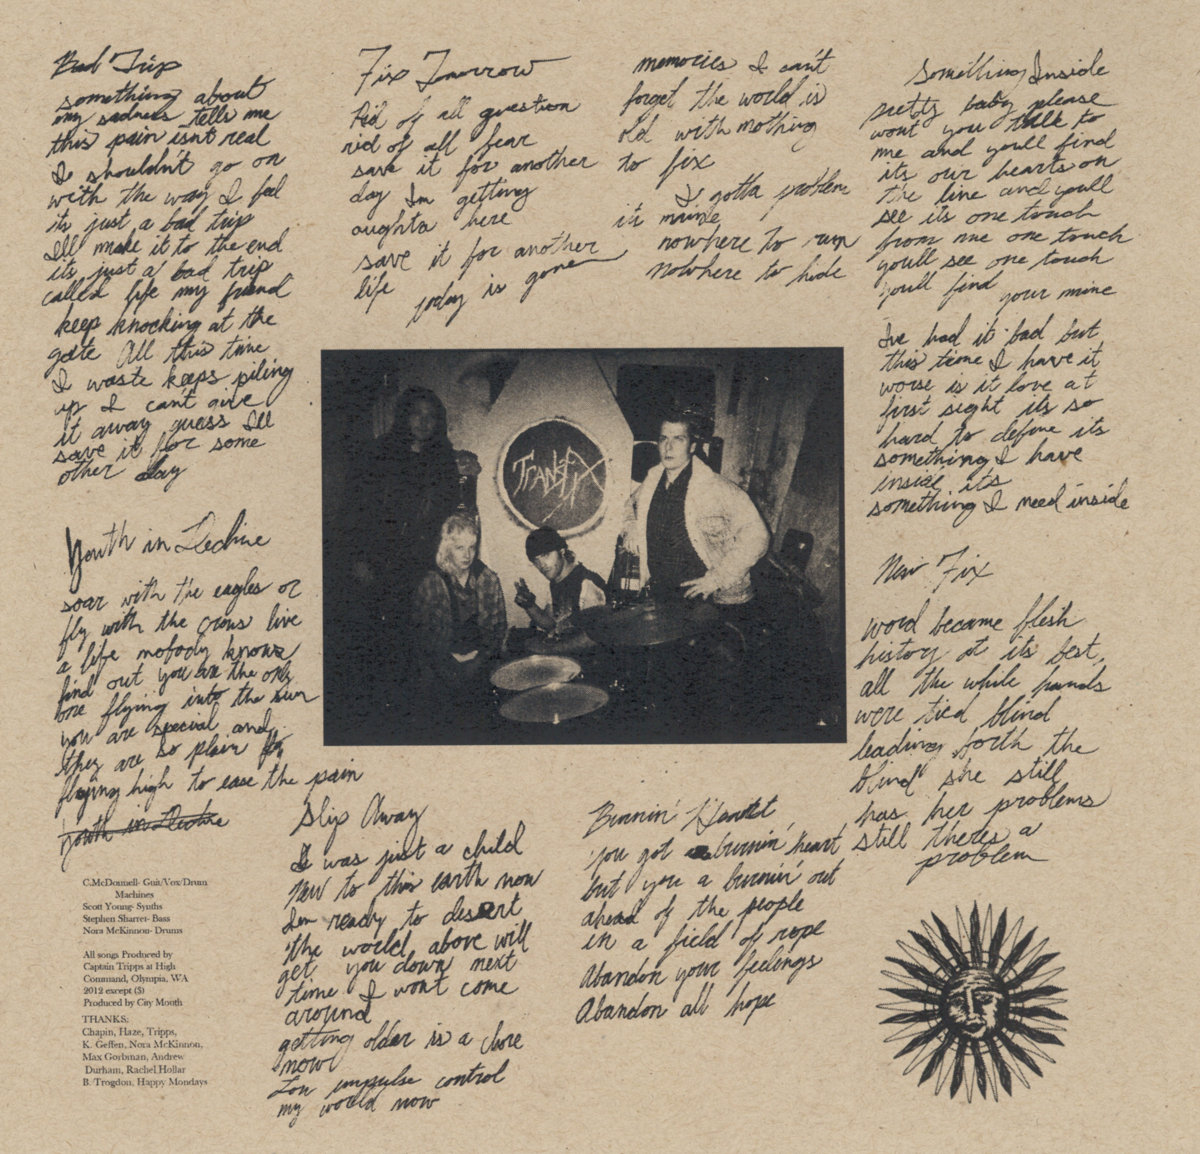 Bad Trip
something about
my sadness tells me
this pain isnt real
I shouldn't go on
with the way I feel
its just a bad trip
Ill make it to the end
its just a bad trip
called life my friend
keep knocking at the
gate All this time
I waste keeps piling
up I cant give
it away guess Ill
save it for some
other day
Youth in Decline
soar with the eagles or
fly with the crows live
a life nobody knows
find out you are the only
one flying into the sun
you are special and
they are so plain
flying high to ease the pain
Youth in Decline
Fix Tomorrow
Rid of all question
rid of all fear
save it for another
day Im getting
oughta here
save it for another
life
today is gone
memories I can't
forget the world is
old with nothing
to fix
I gotta problem
its mine
nowhere to run
nowhere to hide
Something Inside
pretty baby please
wont you talk to
me and youll find
its our hearts on
the line and youll
see its one touch
from me one touch
youll see one touch
youll find
your mine
Ive had it bad but
this time I have it
worse is it love at
first sight its so
hard to define its
something I have
inside its
something I need inside
New Fix
word became flesh
history at its best,
all the while hands
were tied blind
leading forth the
blind she still
has her problems
still theres a
problem
TRANSFIX
Slip Away
I was just a child
New to this earth now
Im ready to desert
the world above will
get you down next
time I wont come
around
getting older is a chore
now
Low impulse control
my world now
Burnin' Heart
You got a burnin' heart
but you a burnin' out
ahead of the people
in a field of rope
Abandon your feelings
Abandon all hope
C.McDonnell- Guit/Vox/Drum
Machines
Scott Young- Synths
Stephen Sharret- Bass
Nora McKinnon- Drums
All songs Produced by
Captain Tripps at High
Command, Olympia, WA
2012 except (S)
Produced by City Mouth
THANKS:
Chapin, Haze, Tripps,
K. Geffen, Nora McKinnon,
Max Gorbman, Andrew
Durham, Rachel Hollar
B. Trogdon, Happy Mondays